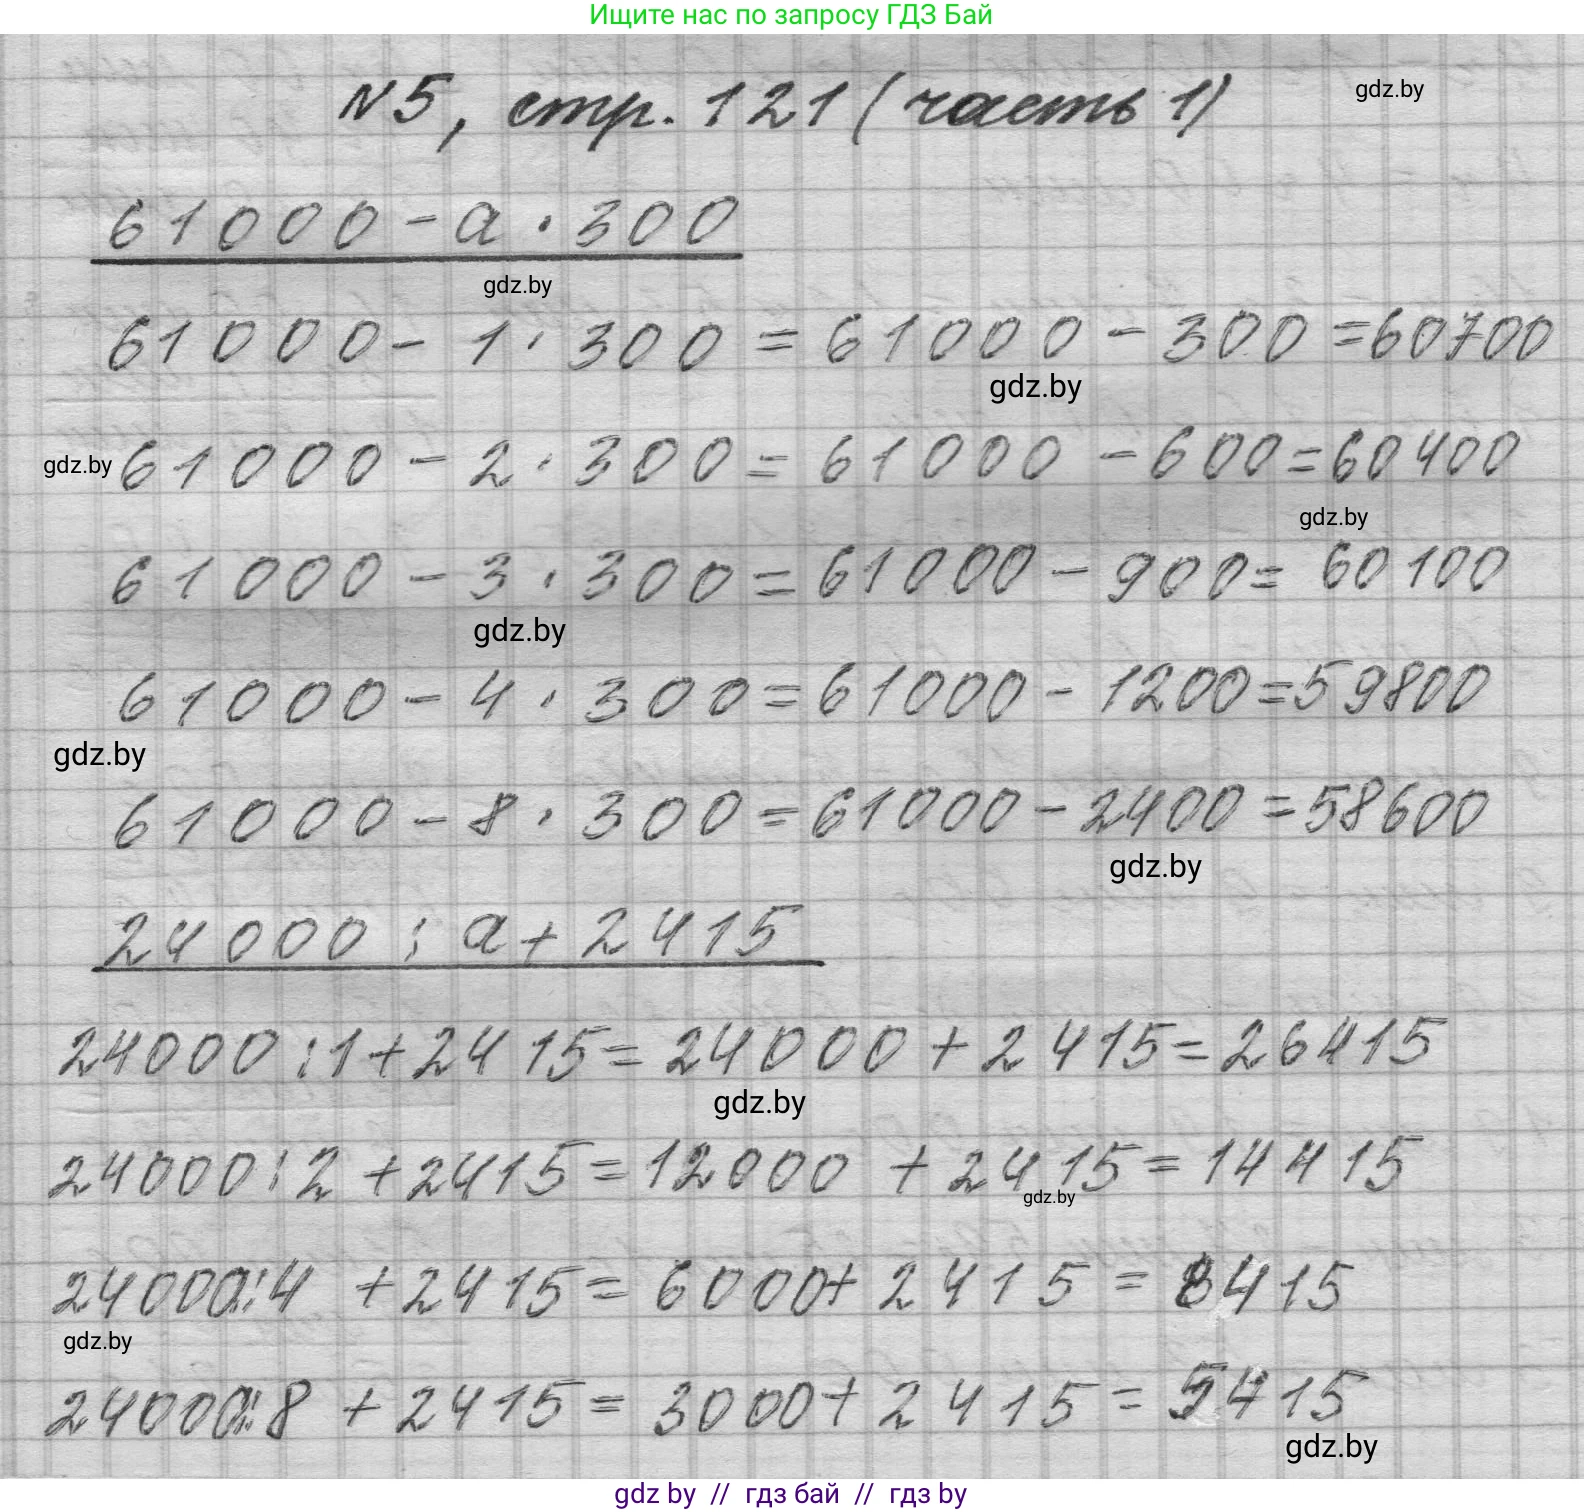 Ищите нас по запросу ГДЗ Бай
№5, стр. 121 (часть 1)
gdz.by
61000 - a · 300
gdz.by
61000 - 1 · 300 = 61000 - 300 = 60700
gdz.by
gdz.by
61000 - 2 · 300 = 61000 - 600 = 60400
gdz.by
61000 - 3 · 300 = 61000 - 900 = 60100
gdz.by
61000 - 4 · 300 = 61000 - 1200 = 59800
gdz.by
61000 - 8 · 300 = 61000 - 2400 = 58600
gdz.by
24000 : a + 2415
24000 : 1 + 2415 = 24000 + 2415 = 26415
gdz.by
24000 : 2 + 2415 = 12000 + 2415 = 14415
gdz.by
24000 : 4 + 2415 = 6000 + 2415 = 8415
gdz.by
24000 : 8 + 2415 = 3000 + 2415 = 5415
gdz.by
gdz by // гдз бай // гдз by